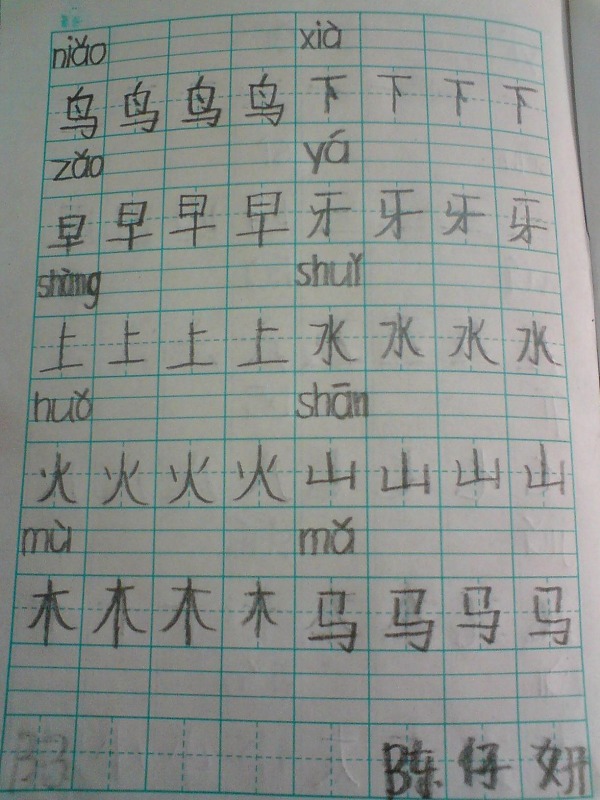 niǎo xià
鸟 鸟 鸟 鸟 下 下 下 下
zǎo yá
早 早 早 早 牙 牙 牙 牙
shàng shuǐ
上 上 上 上 水 水 水 水
huǒ shān
火 火 火 火 山 山 山 山
mù mǎ
木 木 木 木 马 马 马 马
33 陈 仔 妍